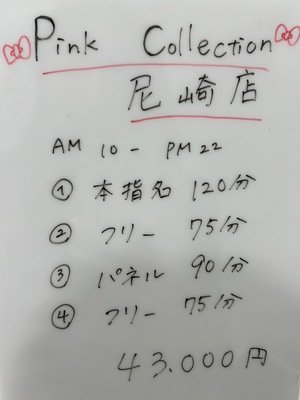 Pink Collection
尼崎店
AM 10 - PM 22
① 本指名 120分
② フリー 75分
③ パネル 90分
④ フリー 75分
43.000円